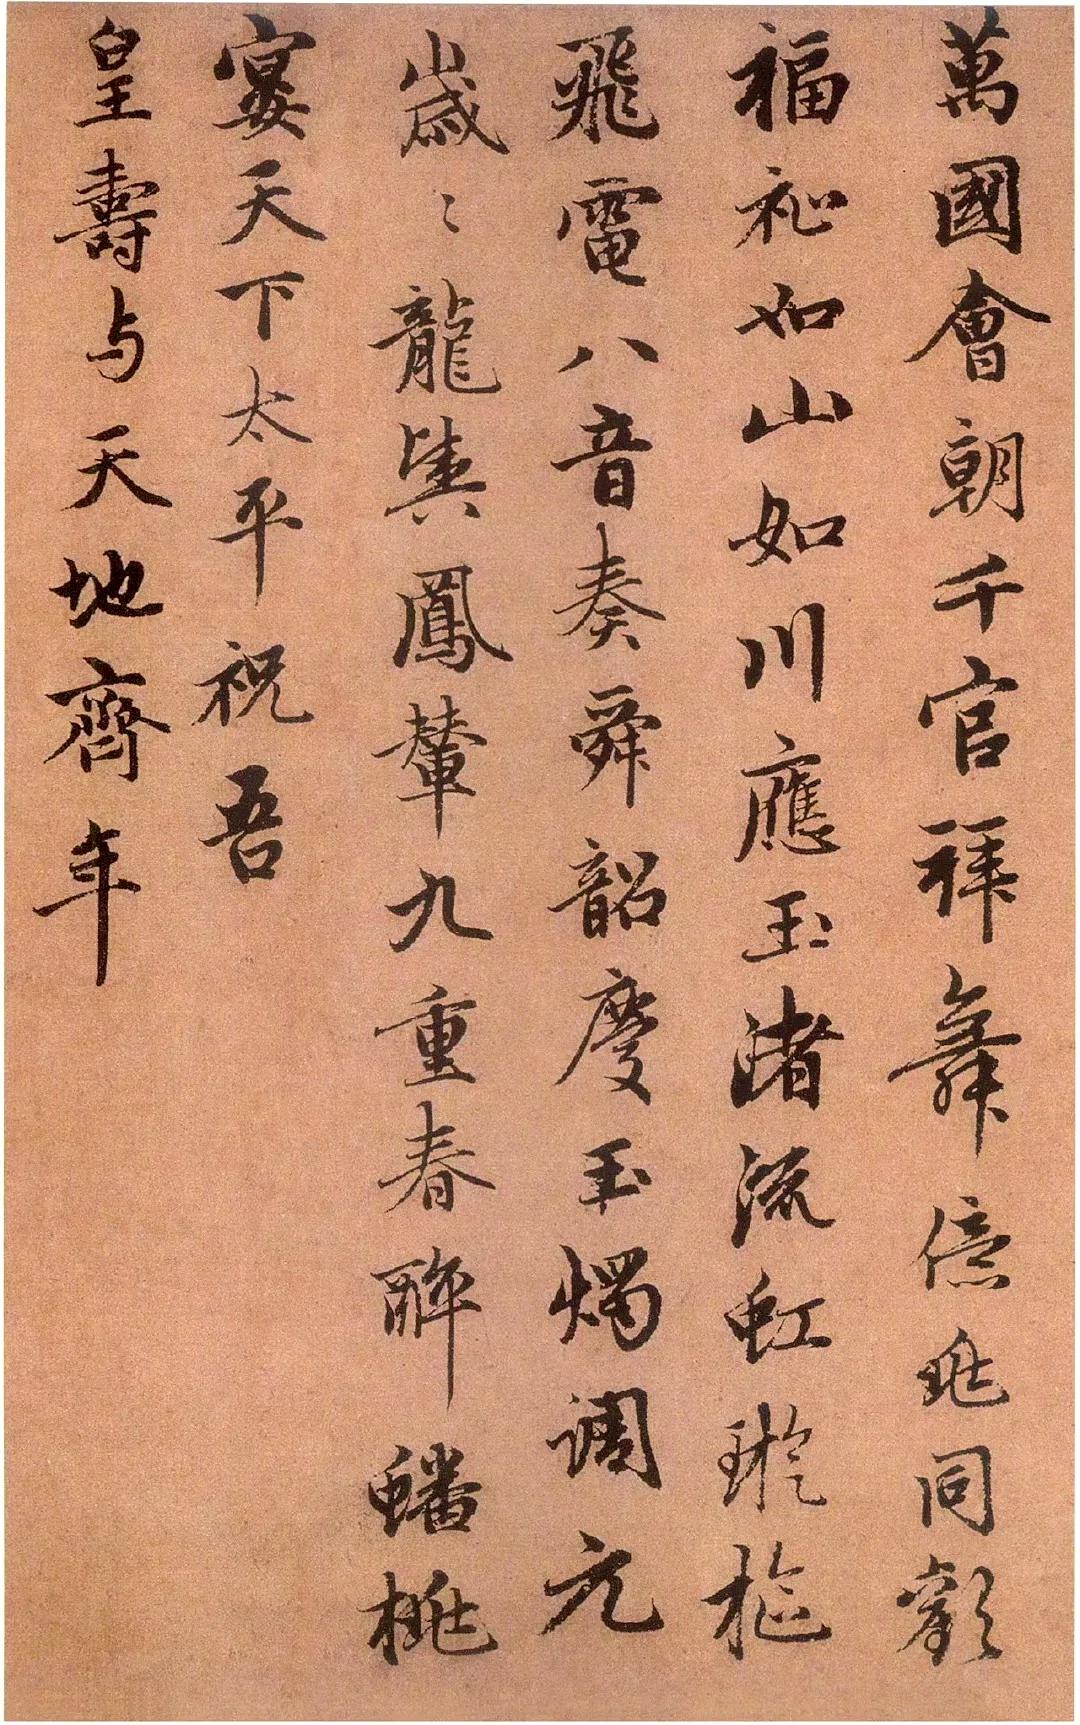 萬國會朝千官拜舞億兆同歡
福祉如山如川應玉渚流虹璇樞
飛電八音奏舜韶慶玉燭調元
歲〻龍輿鳳輦九重春醉蟠桃
宴天下太平祝吾
皇壽与天地齊年